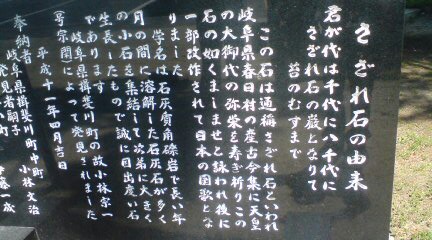 さざれ石の由来
君が代は千代に八千代に
さざれ石の巌となりて
苔のむすまで
この石は通称さざれ石といわれ
岐阜県春日村の産古今集に天皇
の大御代の弥栄を寿ぎ祈りこの
石の如くましませと詠われ後に
一部改作されて日本の国歌とな
りました
学名は石灰質角礫岩で長い年
月の間に溶解した石灰石が多く
の小石を集結して次第に大きく
生長したもので誠に目出度い石
であります
岐阜県揖斐川町の故小林宗一
(号宗閑)によって発見されました
平成十一年四月吉日
奉納者
岐阜県揖斐川町中町 小林文治
発見者嗣子